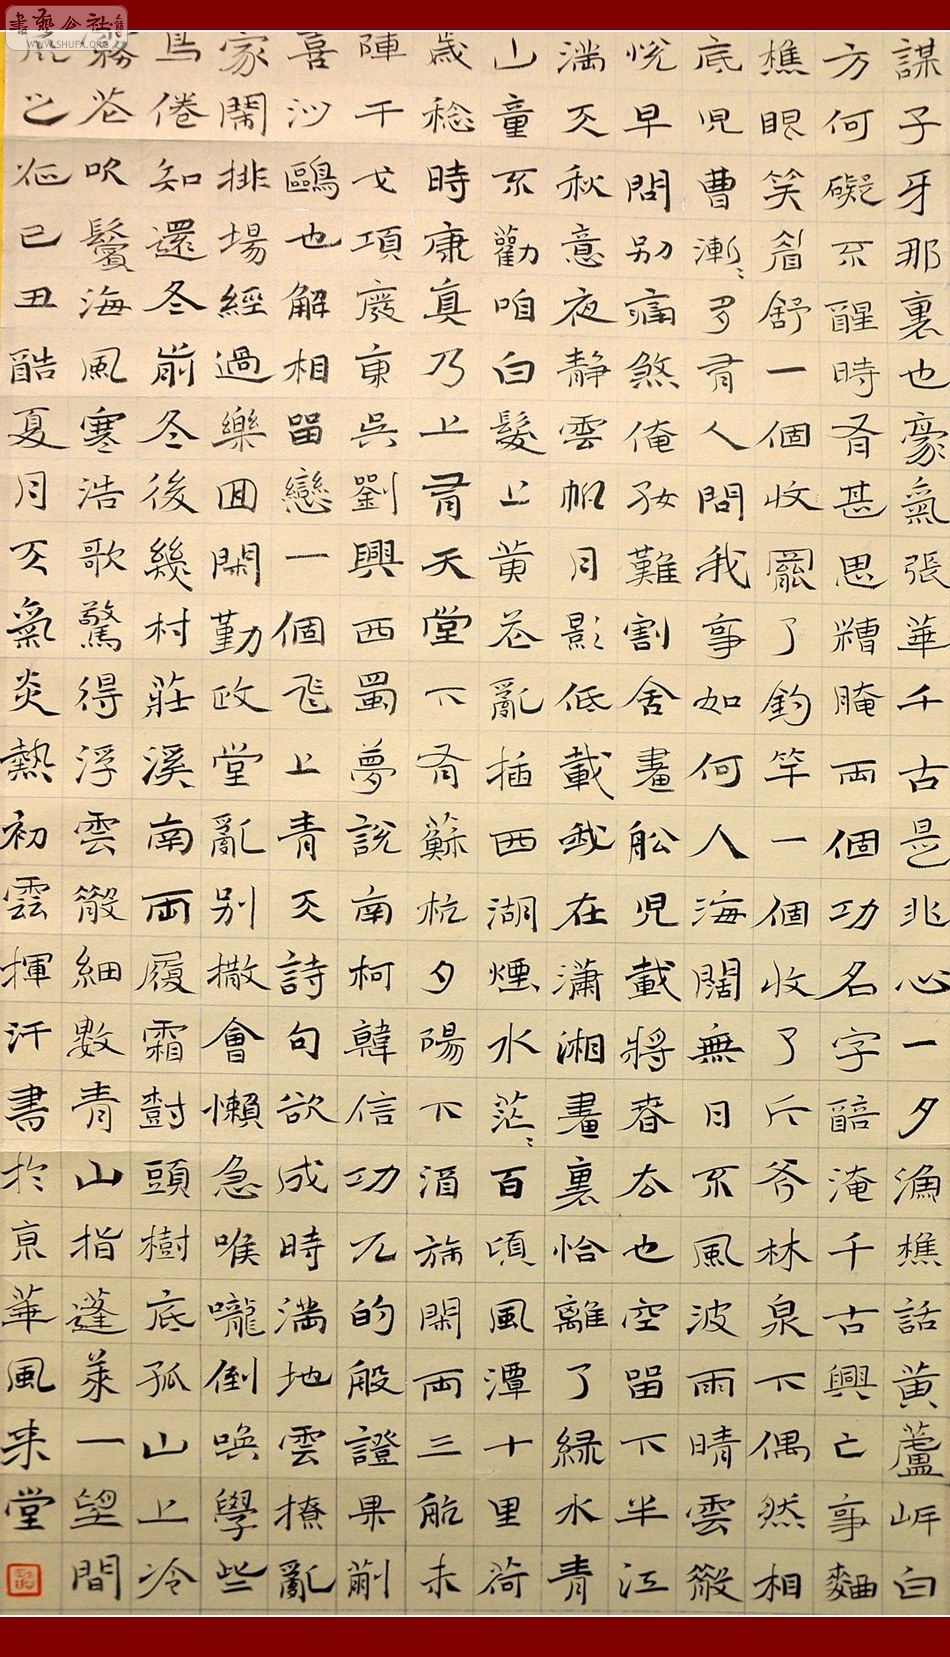 謀子牙那裏也豪氣張華千古是非心一夕漁樵話黃蘆岍白
方何礙不醒時有甚思糟腌兩個功名字醅淹千古興亡事麯
樵眼笑眉舒一個收罷了釣竿一個收了斤斧林泉下偶然相
底兒曹漸漸多有人問我事如何人海闊無日不風波雨晴雲散
悅早問別痛煞俺好難割舍畫船兒載將春去也空留下半江
滿天秋意夜靜雲帆月影低載我在瀟湘畫裏恰離了綠水青
山童不勸咱白髮上黃花亂插西湖煙水茫茫百頃風潭十里荷
歲稔時康真乃上有天堂下有蘇杭夕陽下酒旆閑兩三航未
陣干戈項廢東吳劉興西蜀夢說南柯韓信功兀的般證果蒯
喜沙鷗也解相留戀一個飛上青天詩句欲成時滿地雲撩亂
家鬧排場經過樂回閑勤政堂亂別撒會懶急喉嚨倒喚學些
鳥倦知還冬前冬後幾村莊溪南兩履霜對頭樹底孤山上冷
霧花吹鬢海風寒浩歌驚得浮雲散細數青山指蓬萊一望間
之己丑酷夏月天氣炎熱初雲揮汗書於京華風來堂
書藝公社
WWW.SHUFA.ORG